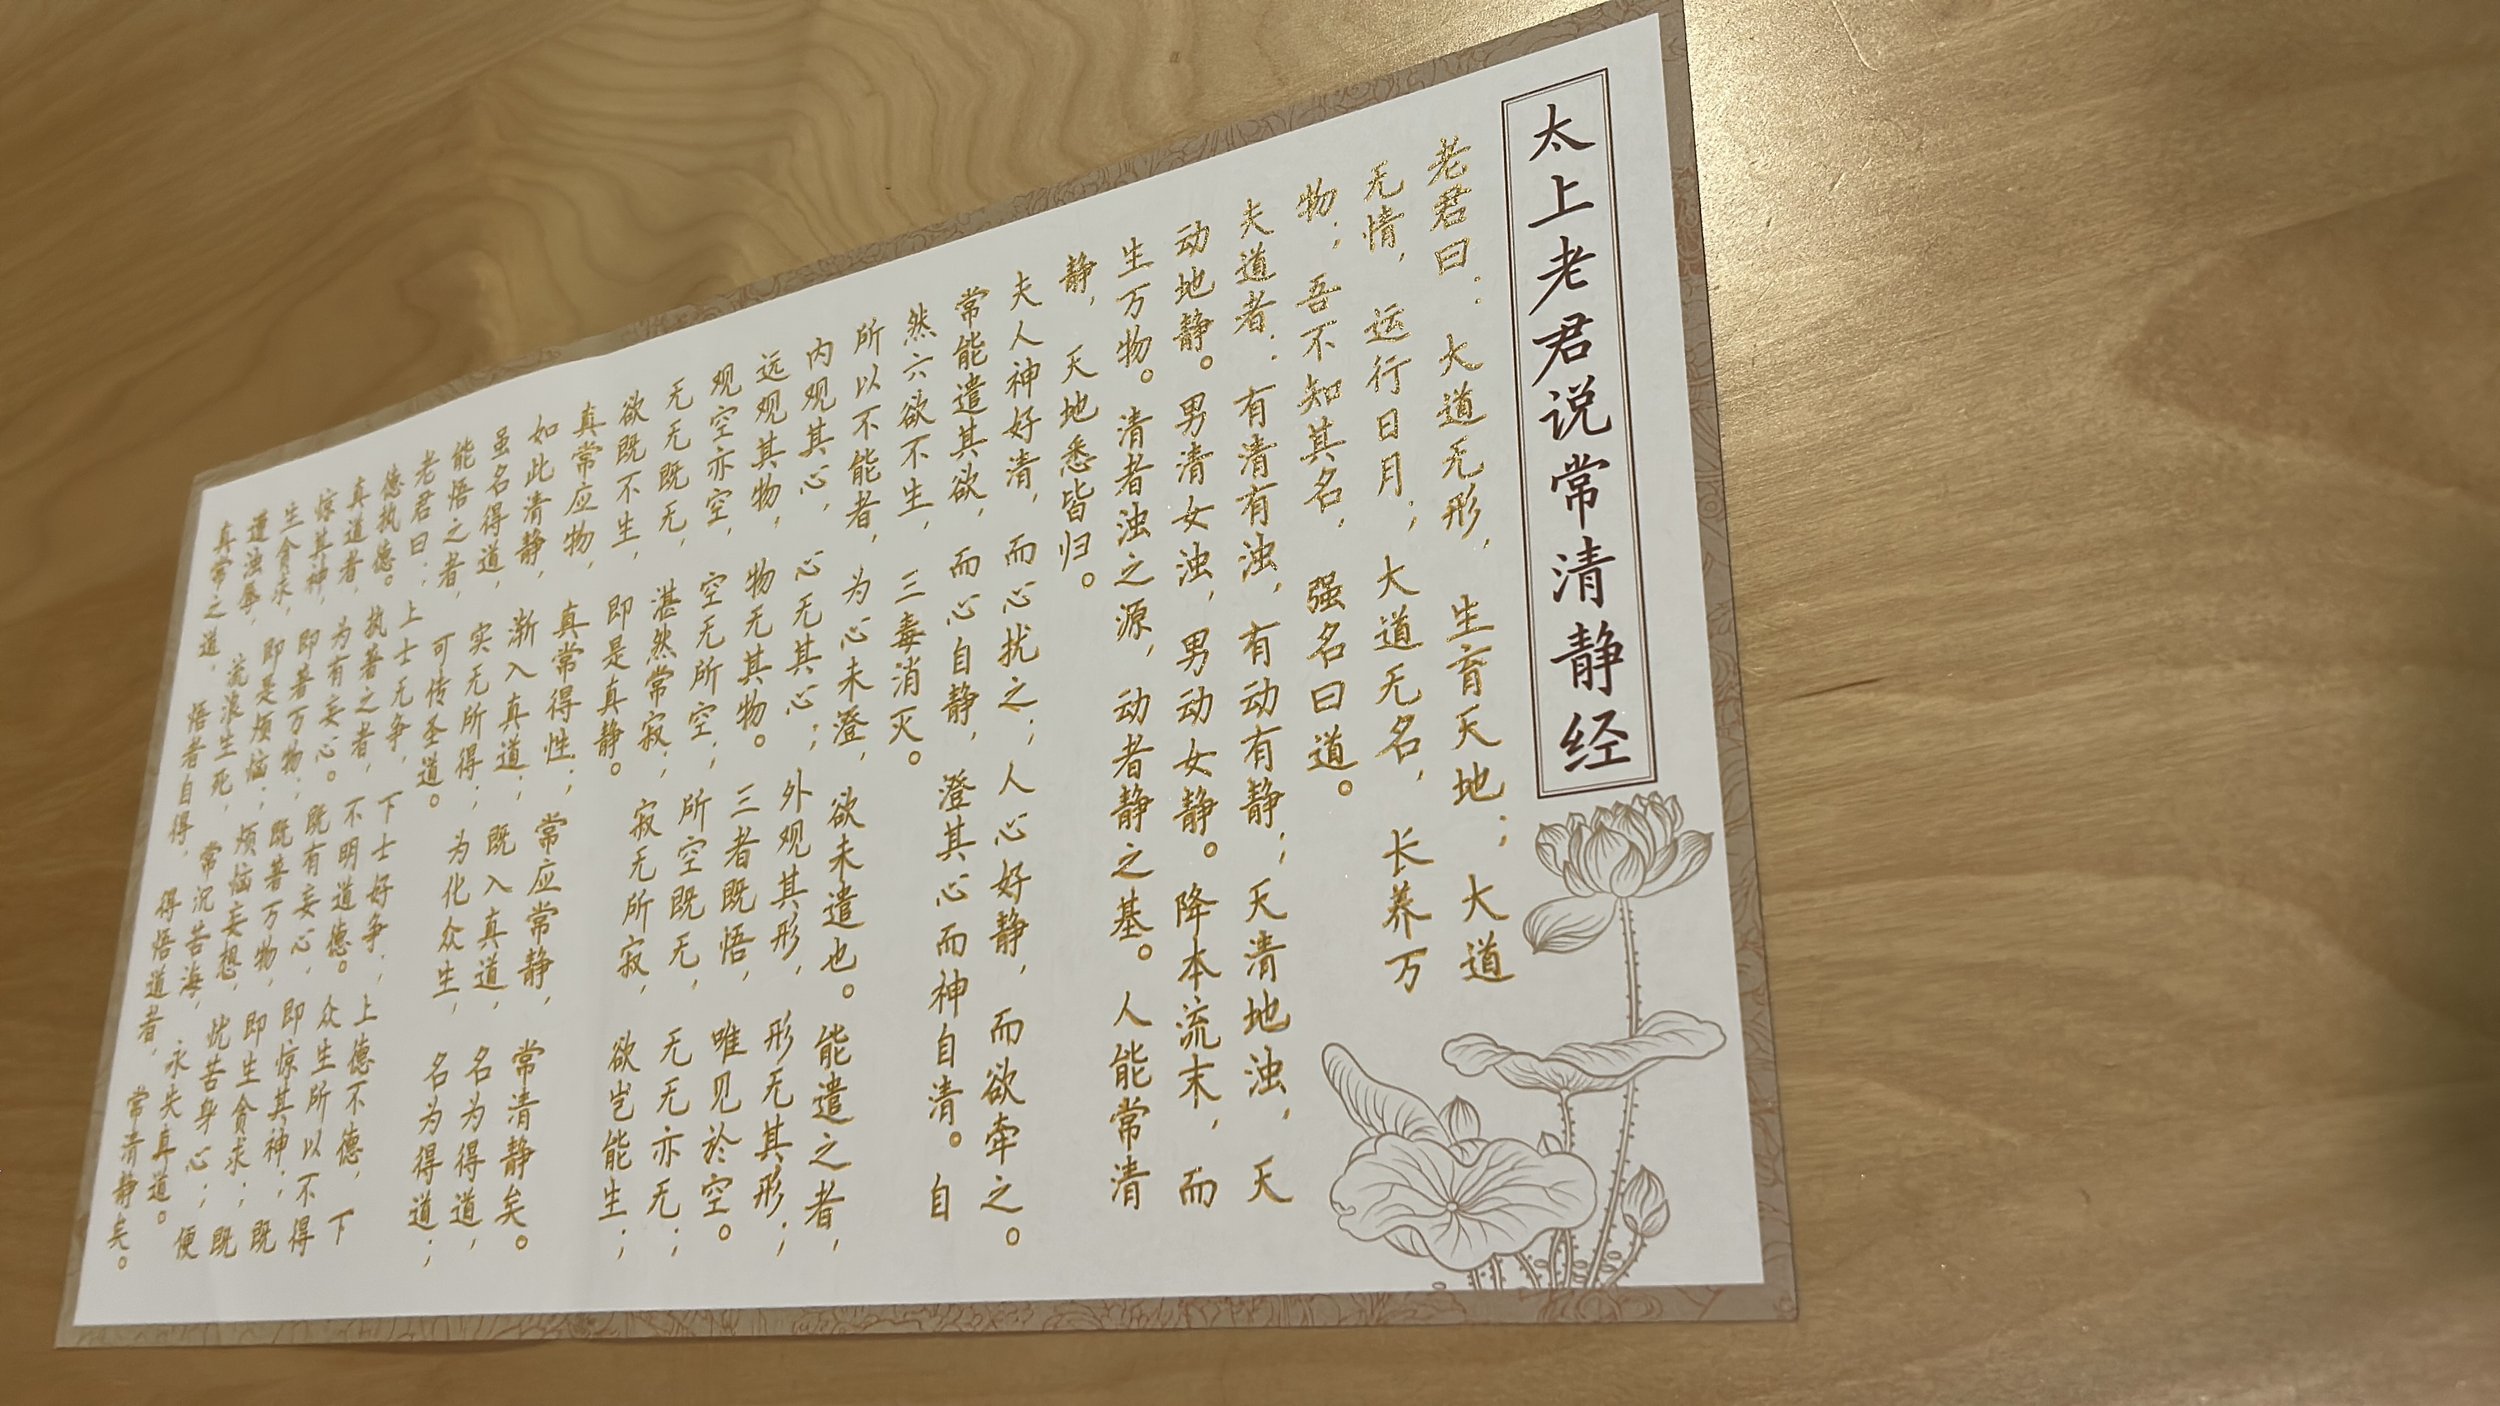 太上老君说常清静经
老君曰：大道无形，生育天地；大道
无情，运行日月；大道无名，长养万
物；吾不知其名，强名曰道。
夫道者：有清有浊，有动有静；天清地浊，天
动地静。男清女浊，男动女静。降本流末，而
生万物。清者浊之源，动者静之基。人能常清
静，天地悉皆归。
夫人神好清，而心扰之；人心好静，而欲牵之。
常能遣其欲，而心自静，澄其心而神自清。自
然六欲不生，三毒消灭。
所以不能者，为心未澄，欲未遣也。能遣之者，
内观其心，心无其心；外观其形，形无其形；
远观其物，物无其物。三者既悟，唯见於空。
观空亦空，空无所空；所空既无，无无亦无；
无无既无，湛然常寂；寂无所寂，欲岂能生；
欲既不生，即是真静。
真常应物，真常得性；常应常静，常清静矣。
如此清静，渐入真道；既入真道，名为得道，
虽名得道，实无所得；为化众生，名为得道；
能悟之者，可传圣道。
老君曰：上士无争，下士好争；上德不德，下
德执德。执著之者，不明道德。众生所以不得
真道者，为有妄心。既有妄心，即惊其神；既
惊其神，即著万物；既著万物，即生贪求；既
生贪求，即是烦恼；烦恼妄想，忧苦身心；便
遭浊辱，流浪生死，常沉苦海，永失真道。
真常之道，悟者自得，得悟道者，常清静矣。